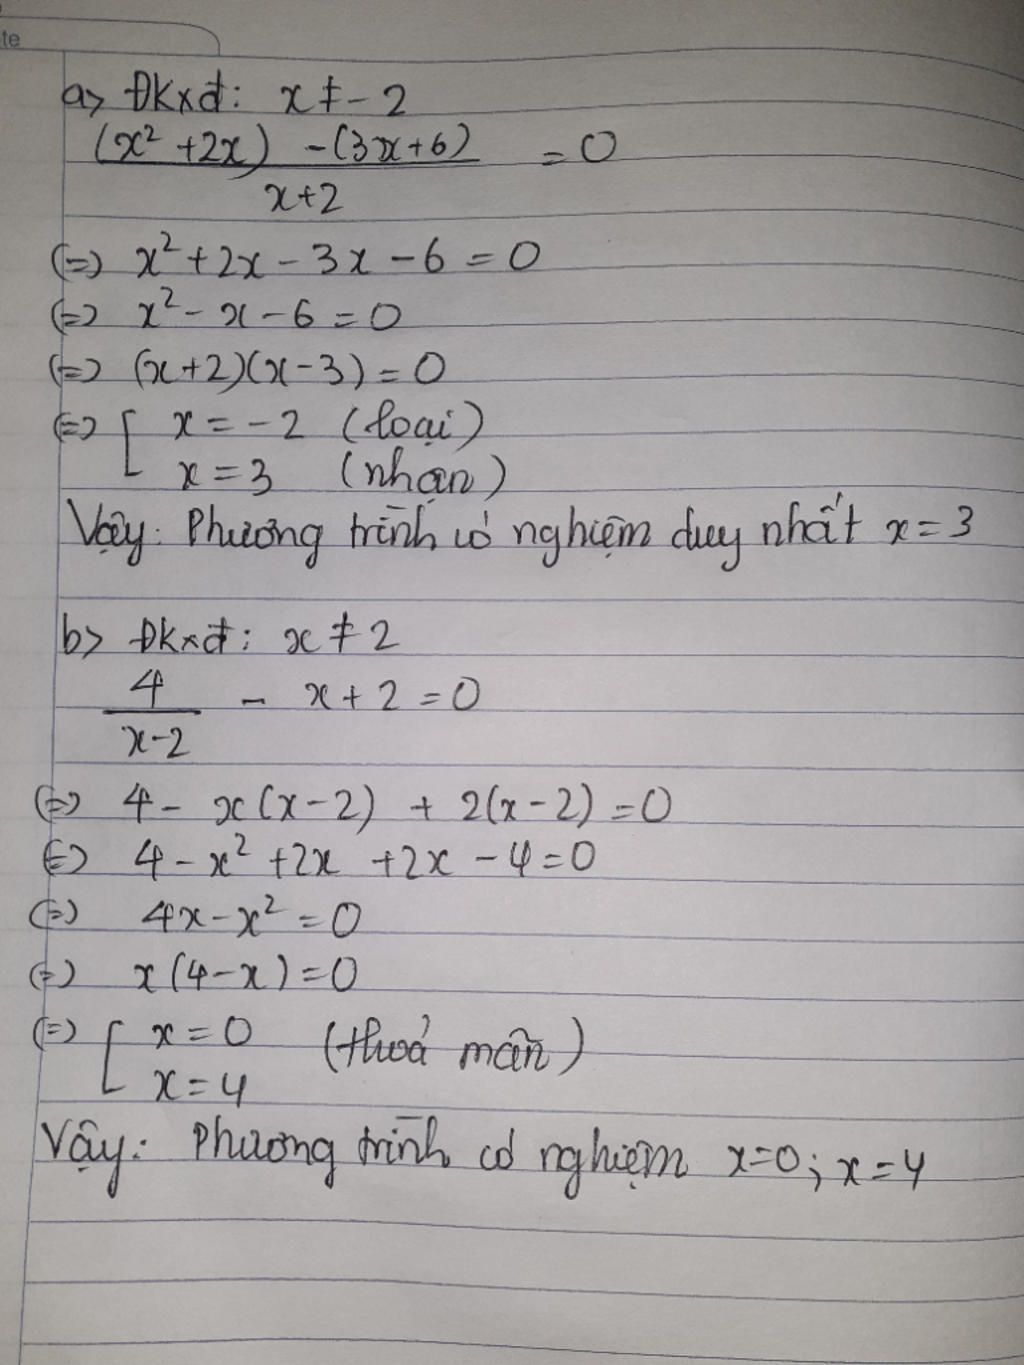 te
a> Đkxđ: x ≠ -2
(x² +2x) -(3x+6) = 0
x+2
(=) x² + 2x - 3x - 6 = 0
(=) x² - x - 6 = 0
(=) (x+2)(x-3) = 0
(=) [ x = -2 (loại)
x = 3 (nhận)
Vậy: Phương trình có nghiệm duy nhất x = 3
b> Đkxđ: x ≠ 2
4 - x + 2 = 0
x-2
(=) 4 - x(x-2) + 2(x-2) = 0
(=) 4 - x² + 2x + 2x - 4 = 0
(=) 4x - x² = 0
(=) x(4-x) = 0
(=) [ x = 0 (thoả mãn)
x = 4
Vậy: Phương trình có nghiệm x=0; x = 4